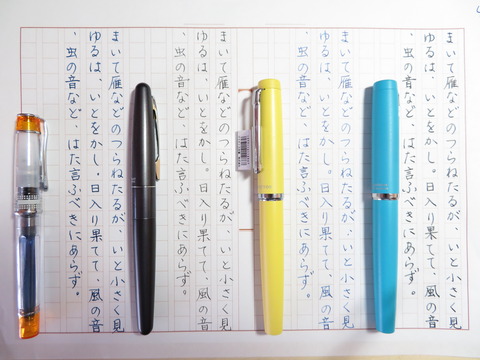 まいて雁などのつらねたるが、いと小さく見
ゆるは、いとをかし。日入り果てて、風の音
、虫の音など、はた言ふべきにあらず。
まいて雁などのつらねたるが、いと小さく見
ゆるは、いとをかし。日入り果てて、風の音
、虫の音など、はた言ふべきにあらず。
まいて雁などのつらねたるが、いと小さく見
ゆるは、いとをかし。日入り果てて、風の音
、虫の音など、はた言ふべきにあらず。
まいて雁などのつらねたるが、いと小さく見
ゆるは、いとをかし。日入り果てて、風の音
、虫の音など、はた言ふべきにあらず。